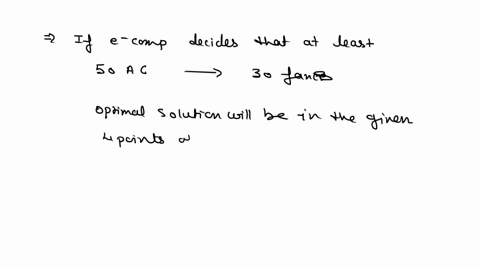 ⇒ If e-comp decides that at least
50 AC → 30 fans
optimal solution will be in the given
4 points